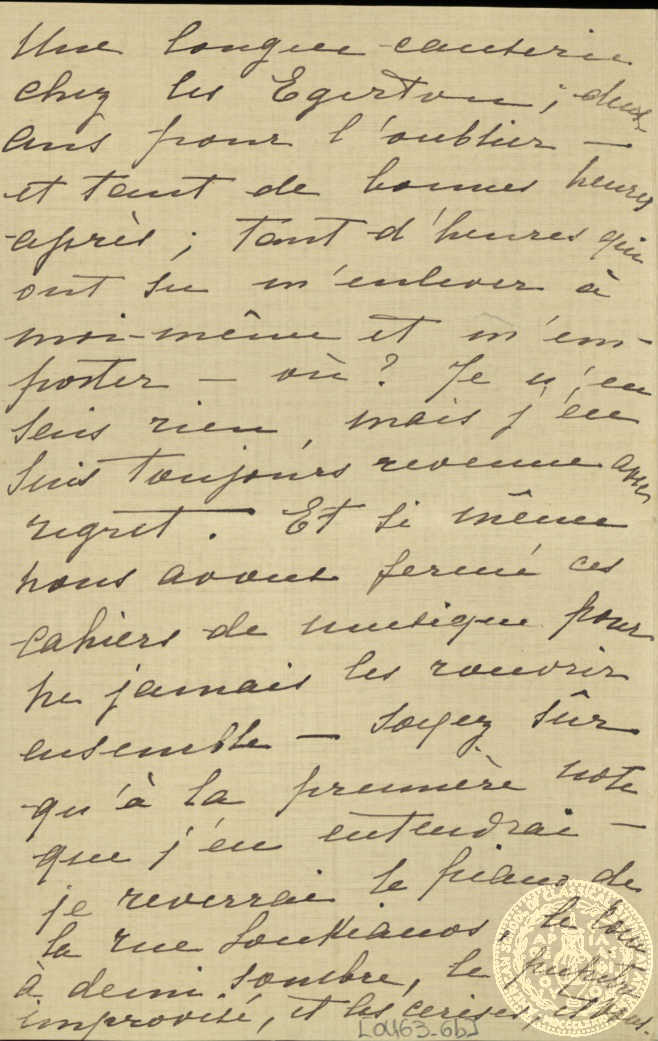 Une longue causerie
chez les Egerton; deux
ans pour l'oublier —
et tant de bonnes heures
après; tant d'heures qui
ont su m'enlever à
moi-même et m'em-
porter — où? Je n'en
sais rien, mais j'en
suis toujours revenue avec
regret. Et si même
nous avons fermé ces
cahiers de musique pour
ne jamais les rouvrir
ensemble — soyez sûr
qu'à la première note
que j'en entendrai —
je reverrai le piano de
la rue Loukianos, le
à demi sombre, le pupitre
improvisé, et les cerises,
[Od63-6b]